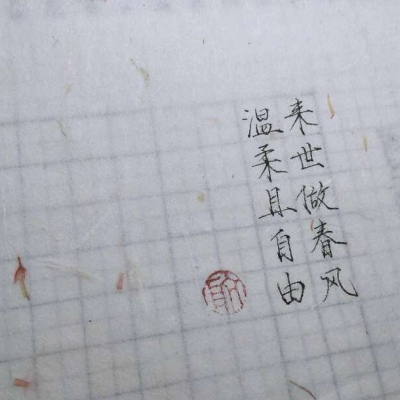 来世做春风
温柔且自由